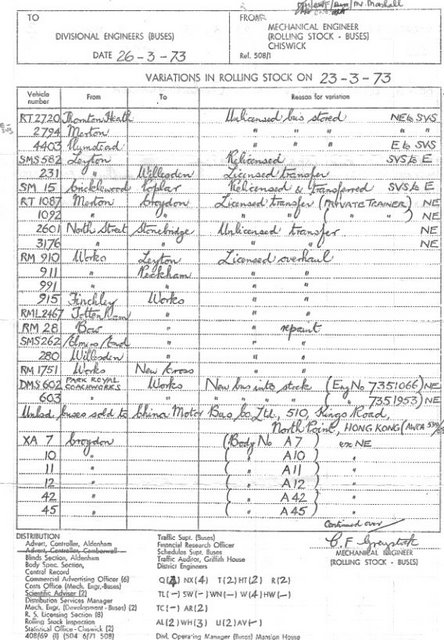 Mr Marshall
TO
DIVISIONAL ENGINEERS (BUSES)
DATE 26-3-73
FROM
MECHANICAL ENGINEER
(ROLLING STOCK - BUSES)
CHISWICK
Ref. 508/1
VARIATIONS IN ROLLING STOCK ON 23-3-73
Vehicle number From To Reason for variation
RT 2720 Thornton Heath Unlicensed bus stored NE to SVS
2794 Merton " " " "
4403 Plumstead " " " E to SVS
SMS 582 Leyton Relicensed SVS to E
231 " Willesden Licensed transfer
SM 15 Cricklewood Poplar Relicensed & transferred SVS to E
RT 1087 Merton Croydon Licensed transfer (PRIVATE TRAINER) NE
1092 " " " " ( " " ) NE
2601 North Street Stonebridge Unlicensed transfer NE
3176 " " " " NE
RM 910 Works Leyton Licensed overhaul
911 " Peckham " "
991 " " " "
915 Finchley Works " "
RML 2467 Tottenham " " "
RM 28 Bow " " repaint
SMS 262 Elmers End " " "
280 Willesden " " "
RM 1751 Works New Cross " "
DMS 602 PARK ROYAL COACHWORKS Works New bus into stock (Eng No 7351066) NE
603 " " " " ( " " 7351953) NE
Unlsd buses sold to China Motor Bus Co Ltd, 510, Kings Road,
North Point, HONG KONG
XA 7 Croydon (Body No A7) ex NE
10 " ( " A10) "
11 " ( " A11) "
12 " ( " A12) "
42 " ( " A42) "
45 " ( " A45) "
Continued over
MECHANICAL ENGINEER
(ROLLING STOCK - BUSES)
DISTRIBUTION
Advert. Controller, Aldenham
Advert. Controller, Camberwell
Blinds Section, Aldenham
Body Spec. Section,
Central Record
Commercial Advertising Officer (6)
Costs Office (Mech. Engr.-Buses)
Scientific Adviser (2)
Distribution Services Manager
Mech. Engr. (Development-Buses) (2)
R. S. Licensing Section (8)
Rolling Stock Inspection
Statistical Office - Chiswick (2)
408/69 (I) (504 6/71 508)
Traffic Supt. (Buses)
Financial Research Officer
Schedules Supt. Buses
Traffic Auditor, Griffith House
District Engineers
Q(4) NX(4) T(2) HT(2) R(2)
TL(-) SW(-) WN(-) W(4) HW(-)
TC(-) AR(2)
AL(2) WH(3) U(2) AV(-)
Divl. Operating Manager (Buses) Mansion House